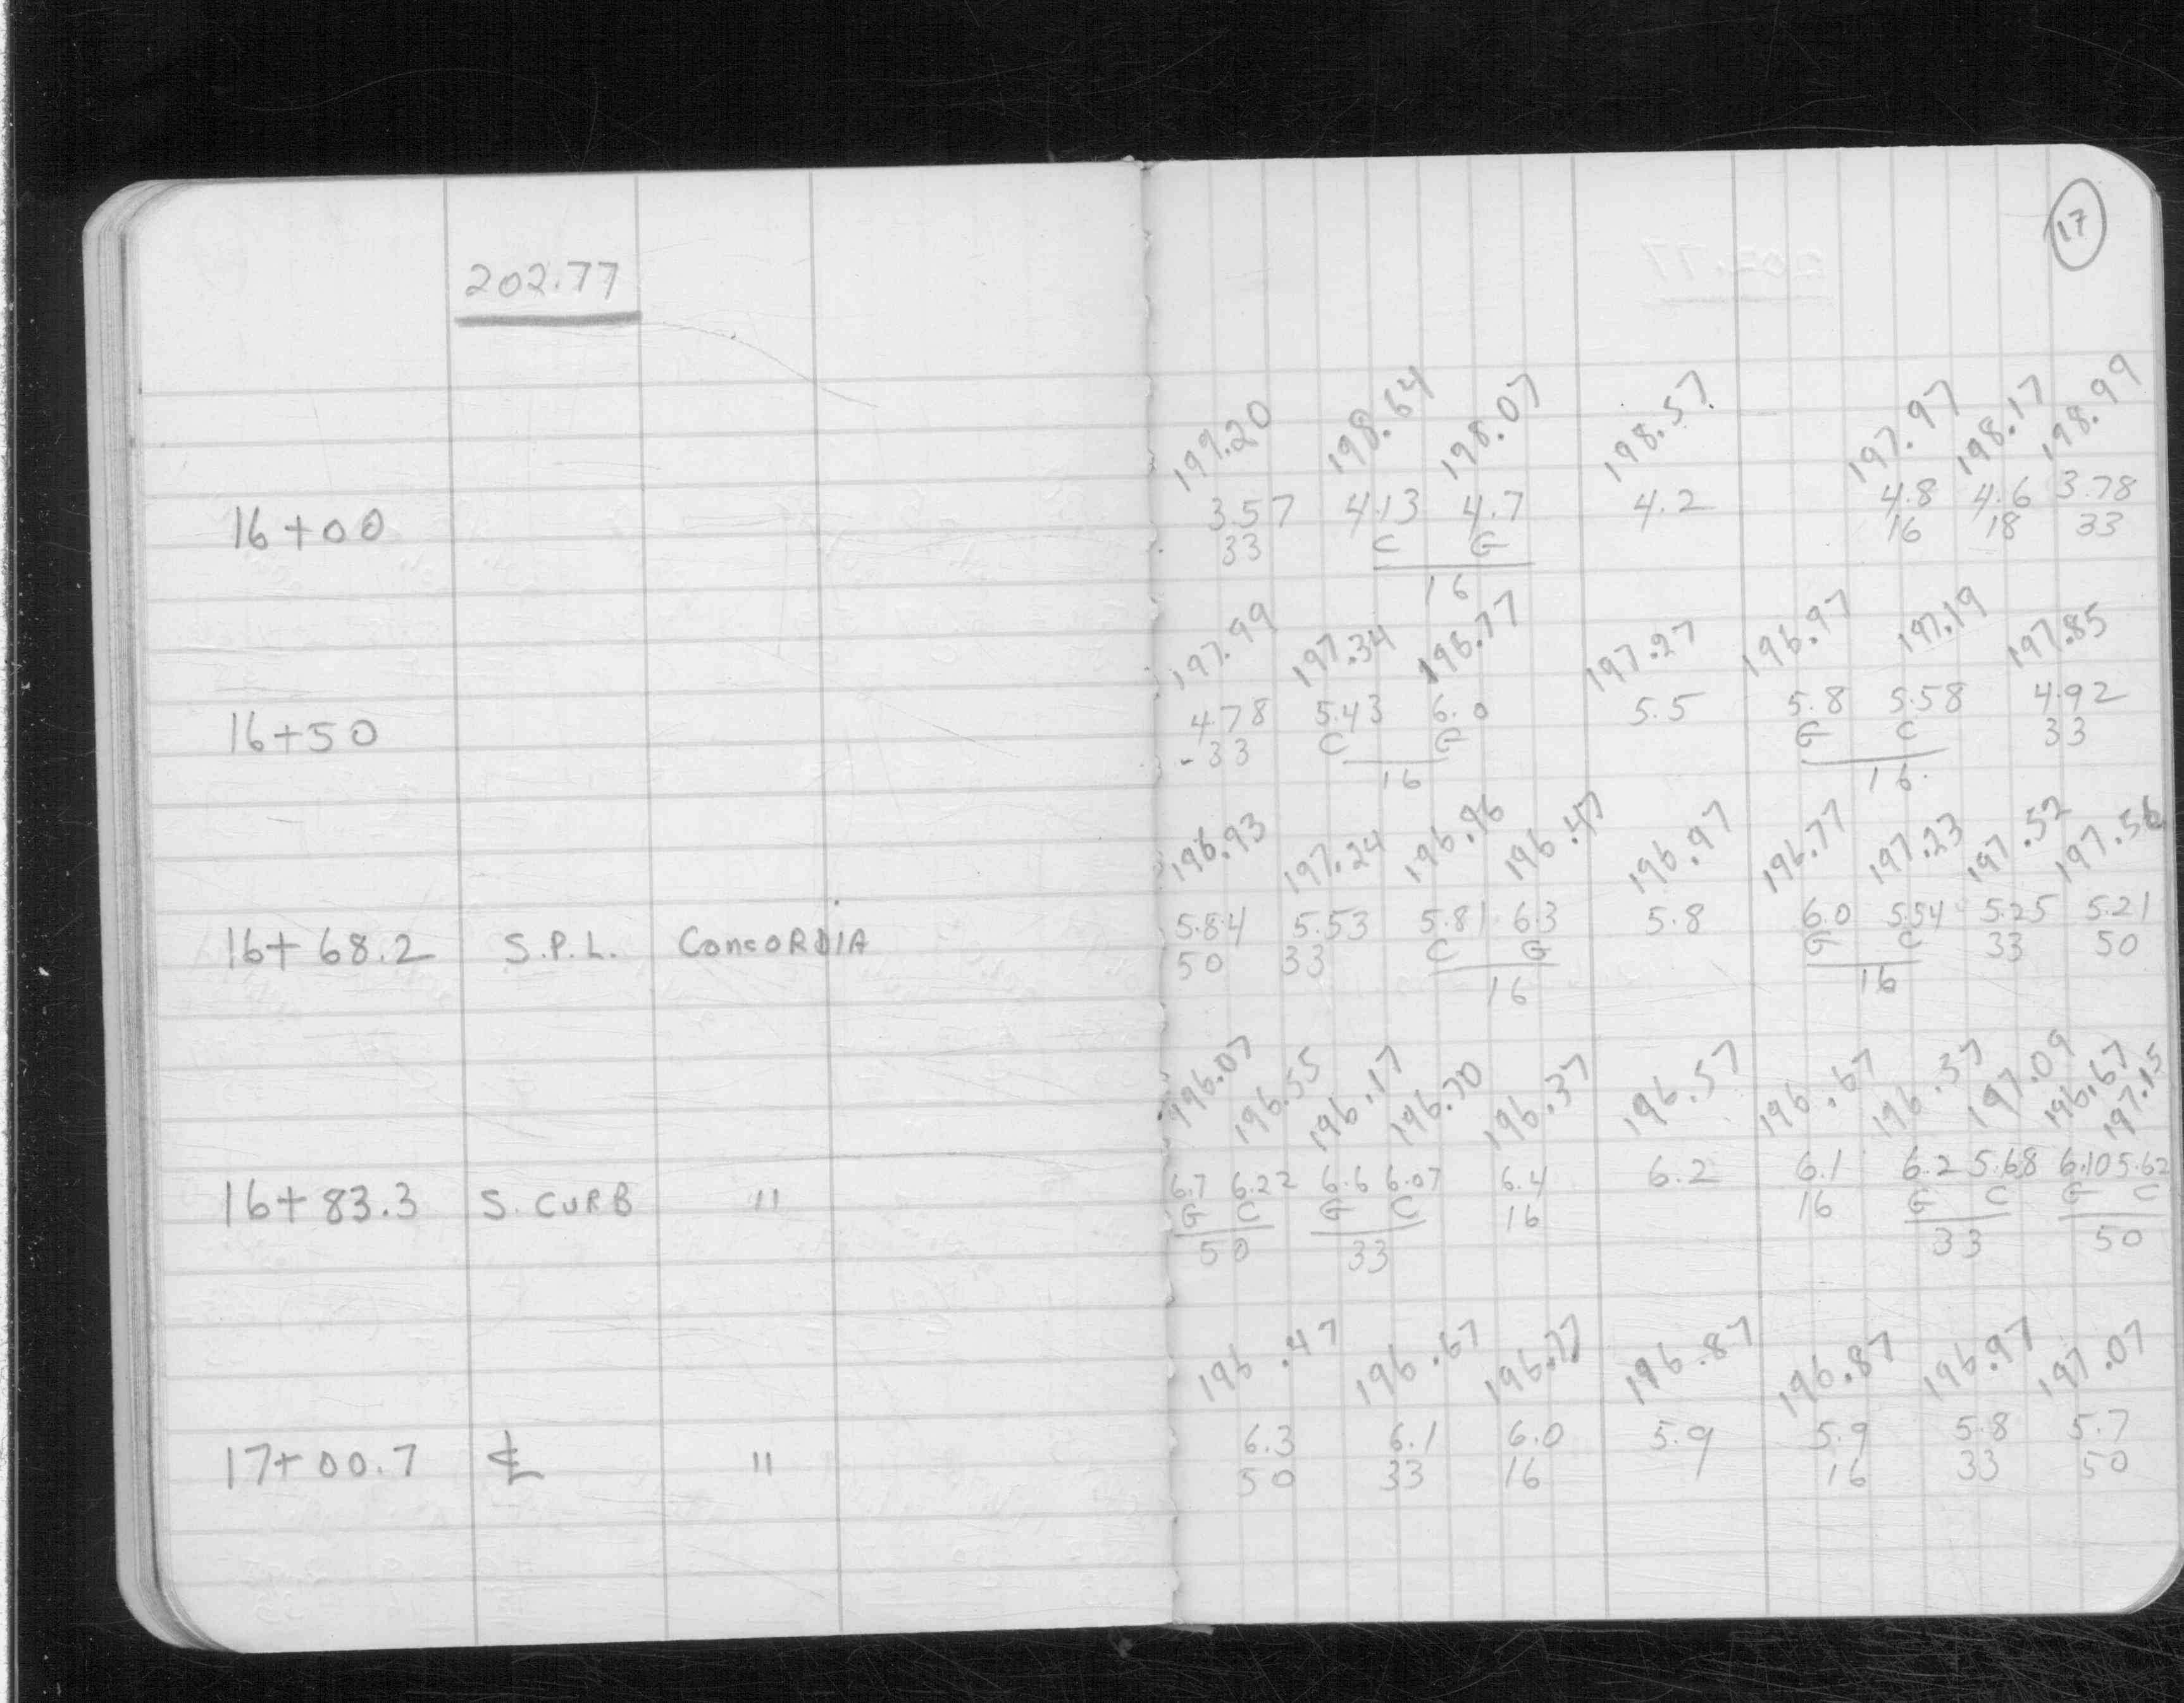 17
202.77
199.20 198.64 198.07 198.57 197.97 198.17 198.99
16+00 3.57 4.13 4.7 4.2 4.8 4.6 3.78
33 C G 16 18 33
16
197.99 197.34 196.77 197.27 196.97 197.19 197.85
16+50 4.78 5.43 6.0 5.5 5.8 5.58 4.92
-33 C G G C 33
16 16
196.93 197.24 196.96 196.47 196.97 196.77 197.23 197.52 197.56
16+68.2 S.P.L. CONCORDIA 5.84 5.53 5.81 6.3 5.8 6.0 5.54 5.25 5.21
50 33 C G G C 33 50
16 16
196.07 196.55 196.17 196.70 196.37 196.57 196.67 196.37 197.09 196.67 197.15
16+83.3 S. CURB " 6.7 6.22 6.6 6.07 6.4 6.2 6.1 6.2 5.68 6.10 5.62
G C G C 16 16 G C G C
50 33 33 50
196.47 196.67 196.77 196.87 196.87 196.97 197.07
17+00.7 ℄ " 6.3 6.1 6.0 5.9 5.9 5.8 5.7
50 33 16 16 33 50